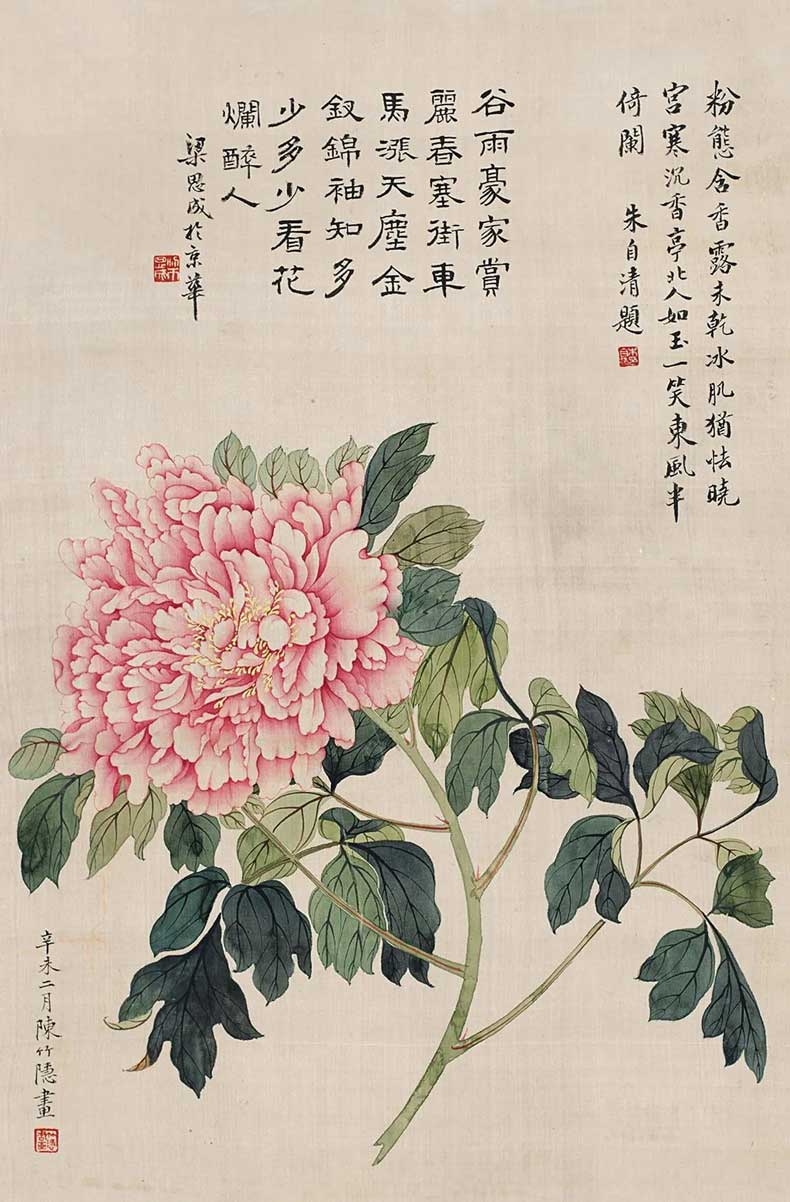 粉態含香露未乾冰肌猶怯曉
宮寒沉香亭北人如玉一笑東風半
倚闌 朱自清題
谷雨豪家賞
麗春塞街車
馬漲天塵金
釵錦袖知多
少多少看花
爛醉人
梁思成於京華
辛未二月陳竹隱畫